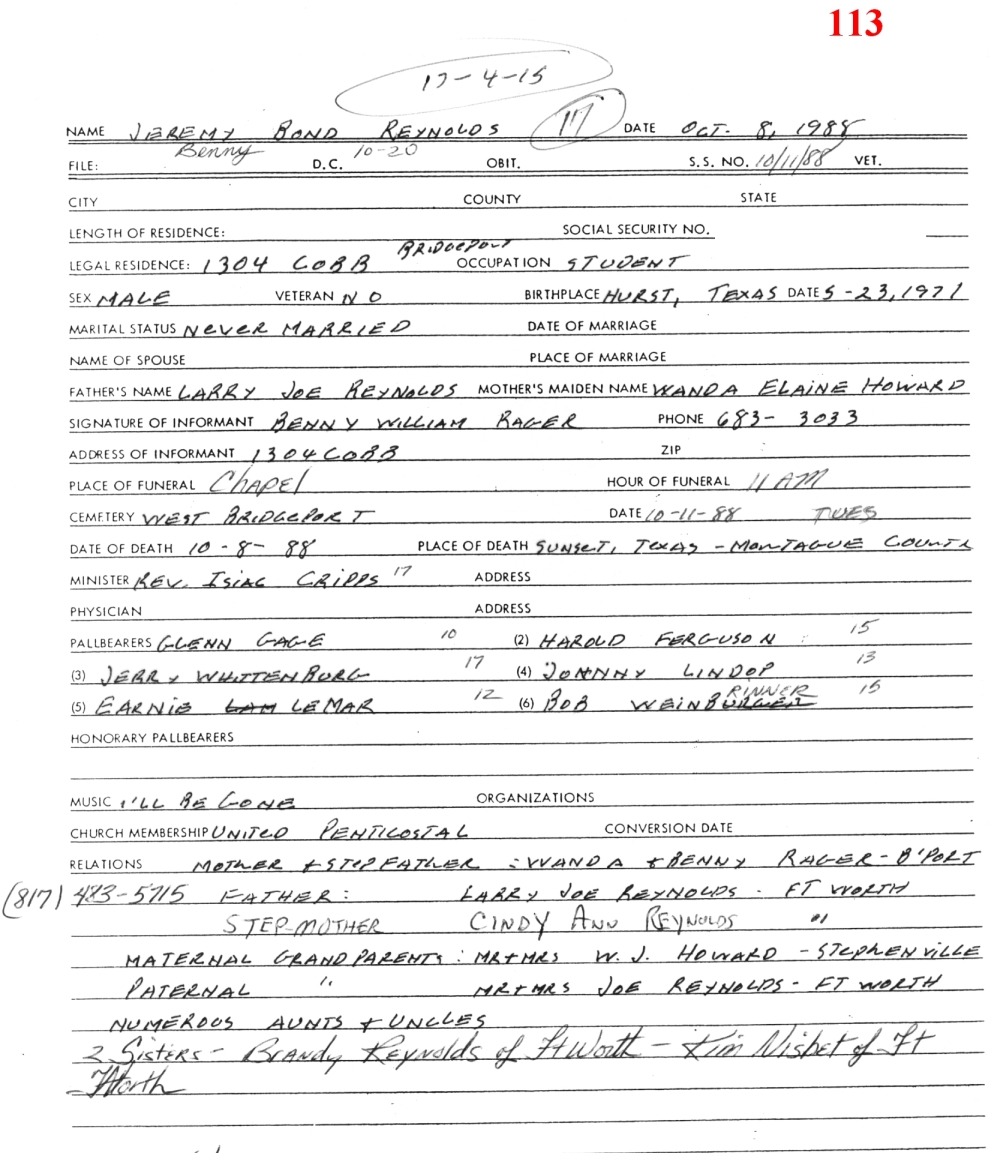 113
17-4-15
NAME JEREMY BOND REYNOLDS 117 DATE OCT. 8, 1988
FILE: Benny D.C. 10-20 OBIT. S.S. NO. 10/11/88 VET.
CITY COUNTY STATE
LENGTH OF RESIDENCE: SOCIAL SECURITY NO.
LEGAL RESIDENCE: 1304 COBB BRIDGEPORT OCCUPATION STUDENT
SEX MALE VETERAN NO BIRTHPLACE HURST, TEXAS DATE 5-23,1971
MARITAL STATUS NEVER MARRIED DATE OF MARRIAGE
NAME OF SPOUSE PLACE OF MARRIAGE
FATHER'S NAME LARRY JOE REYNOLDS MOTHER'S MAIDEN NAME WANDA ELAINE HOWARD
SIGNATURE OF INFORMANT BENNY WILLIAM RAGER PHONE 683-3033
ADDRESS OF INFORMANT 1304 COBB ZIP
PLACE OF FUNERAL Chapel HOUR OF FUNERAL 11 AM
CEMETERY WEST BRIDGEPORT DATE 10-11-88 TUES
DATE OF DEATH 10-8-88 PLACE OF DEATH SUNSET, TEXAS - MONTAGUE COUNTY
MINISTER REV. ISIAC CRIPPS 17 ADDRESS
PHYSICIAN ADDRESS
PALLBEARERS GLENN GAGE 10 (2) HAROLD FERGUSON 15
(3) JERRY WHITTENBURG 17 (4) JOHNNY LINDOP 13
(5) EARNIE LAM LEMAR 12 (6) BOB WEINBURGER RINNER 15
HONORARY PALLBEARERS
MUSIC I'LL BE GONE ORGANIZATIONS
CHURCH MEMBERSHIP UNITED PENTICOSTAL CONVERSION DATE
RELATIONS MOTHER + STEPFATHER : WANDA + BENNY RAGER - B'PORT
(817) 483-5715 FATHER: LARRY JOE REYNOLDS - FT WORTH
STEP-MOTHER CINDY ANN REYNOLDS "
MATERNAL GRANDPARENTS : MR+MRS W. J. HOWARD - STEPHENVILLE
PATERNAL " MR+MRS JOE REYNOLDS - FT WORTH
NUMEROUS AUNTS + UNCLES
2 Sisters - Brandy Reynolds of Ft Worth - Kim Nisbet of Ft
Worth